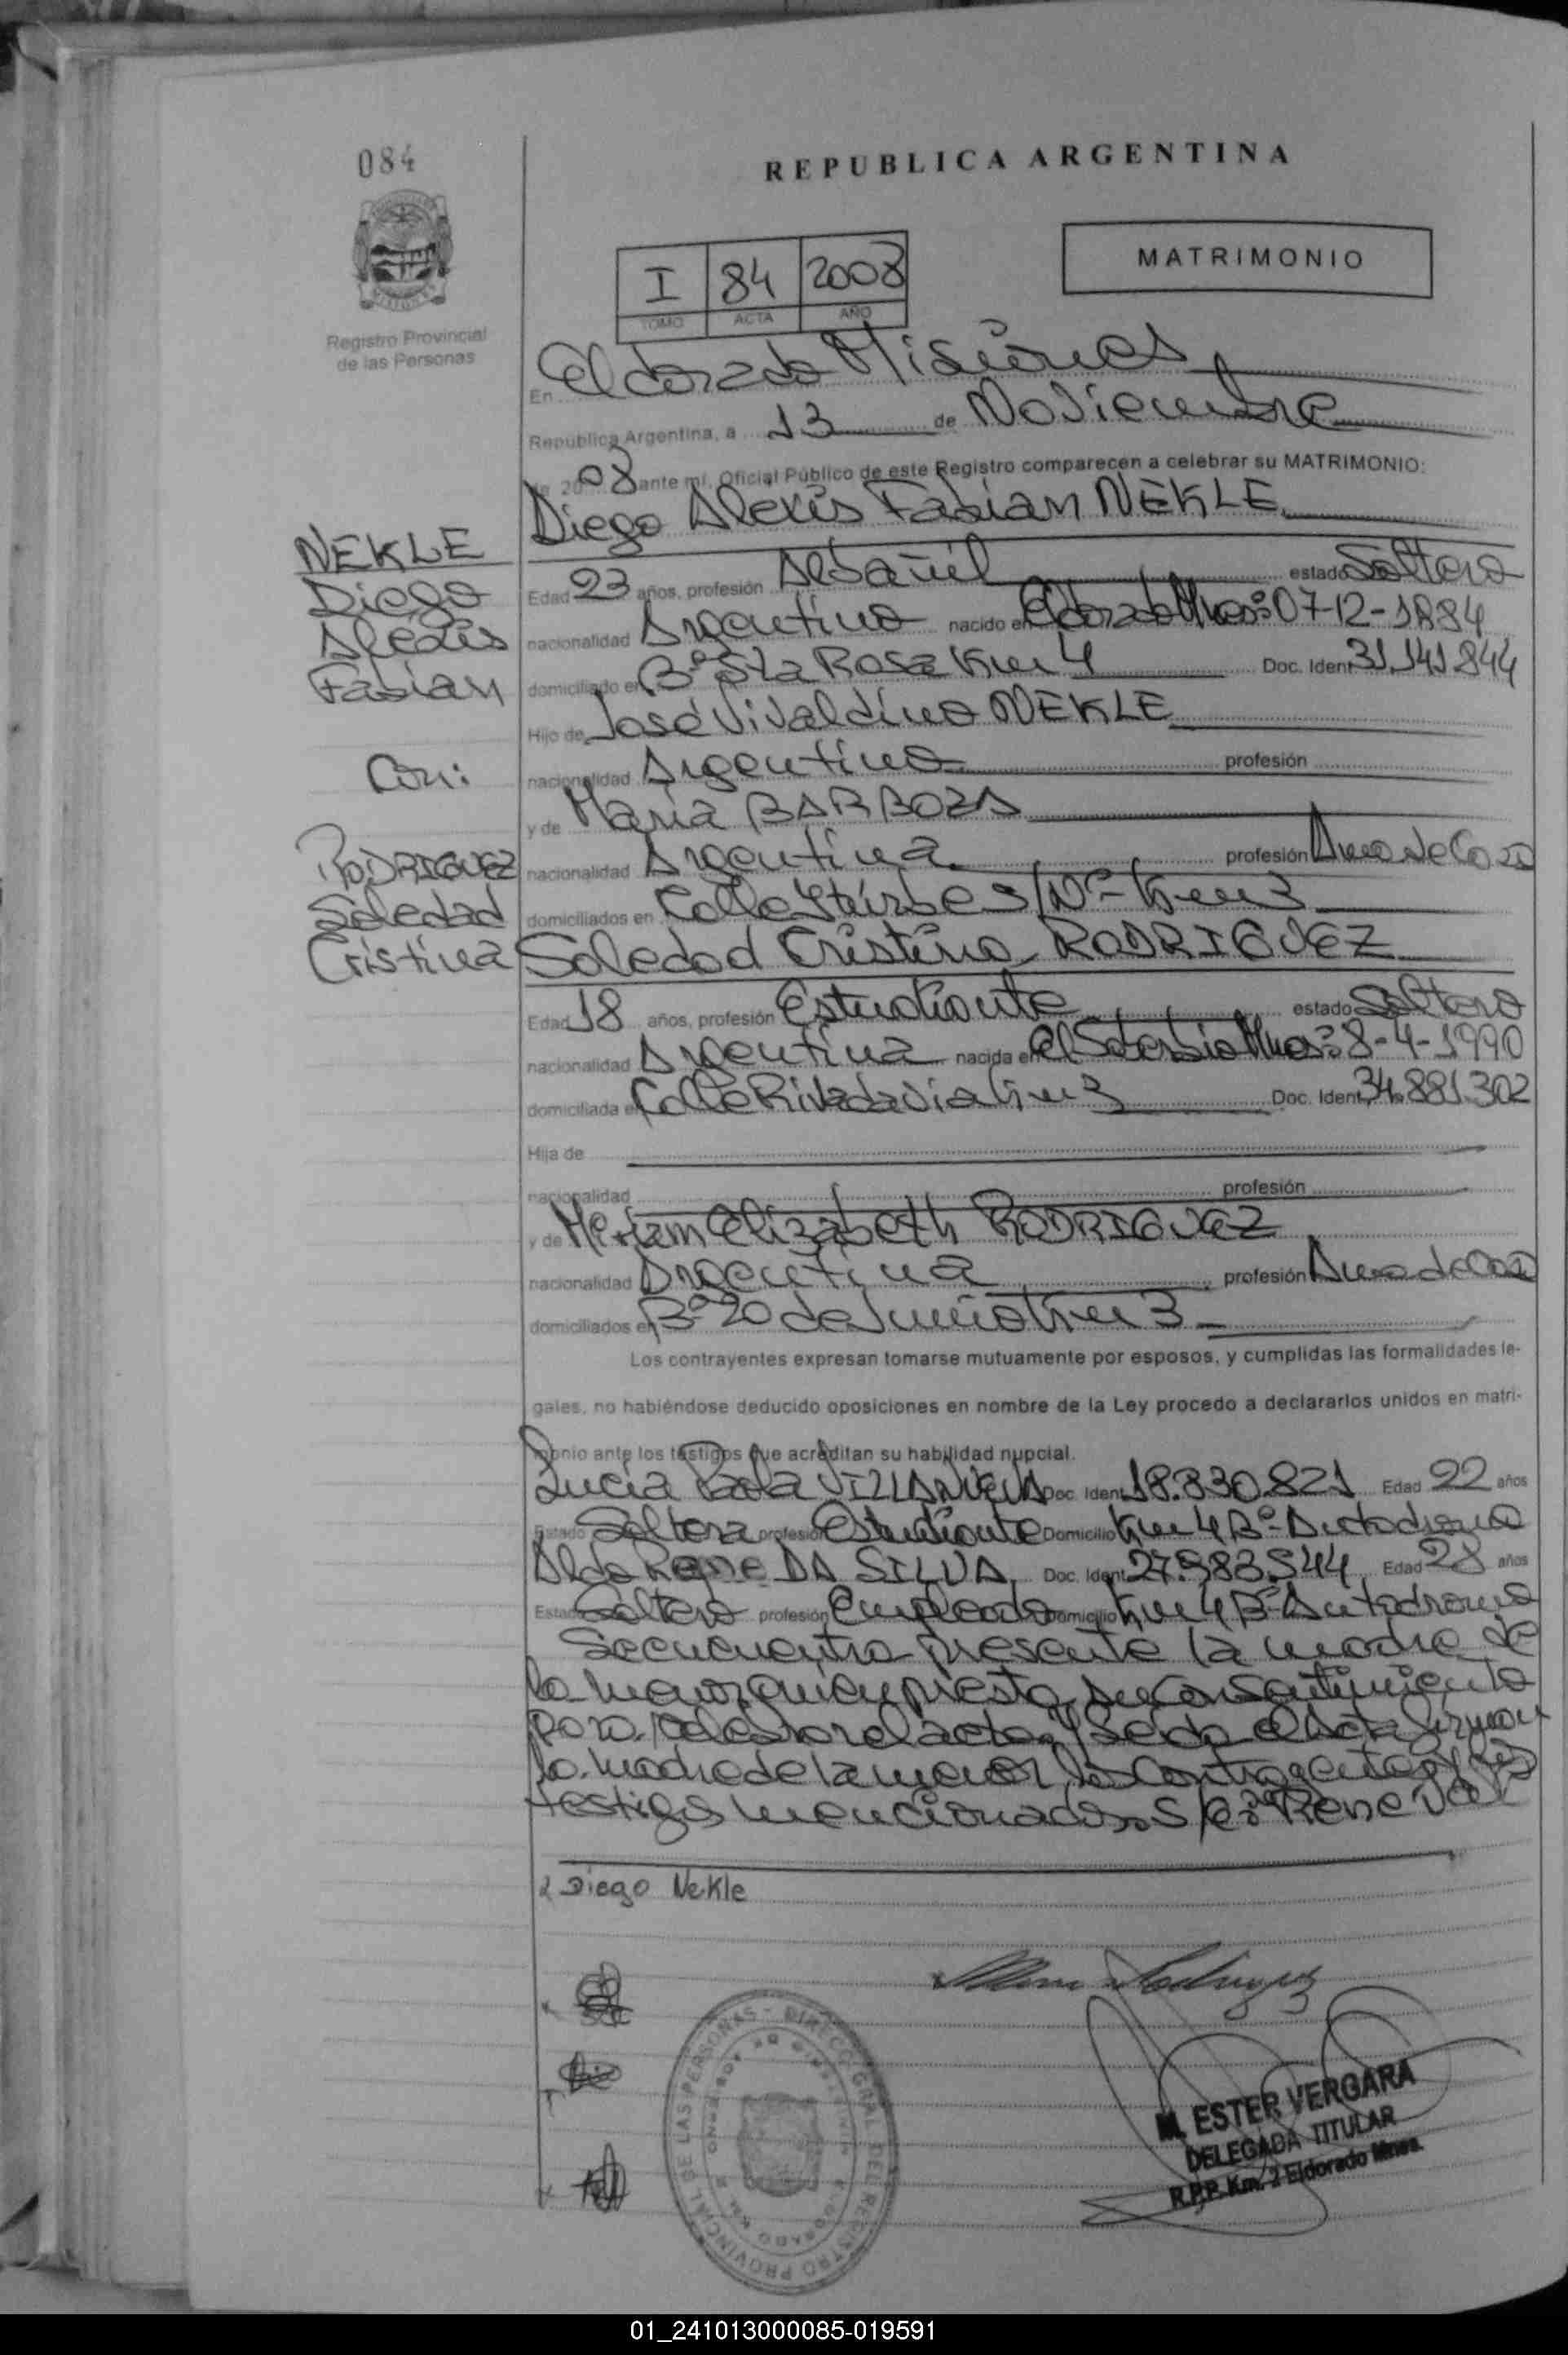 084
REPUBLICA ARGENTINA
MATRIMONIO
I 84 2008
TOMO ACTA AÑO
Registro Provincial
de las Personas
En Eldorado Misiones
Republica Argentina, a 13 de Noviembre
de 2008 ante mí, Oficial Público de este Registro comparecen a celebrar su MATRIMONIO:
Diego Alexis Fabian NEKLE
NEKLE
Diego
Alexis
Fabian
Edad 23 años, profesión Albañil estado Soltero
nacionalidad Argentino nacido en Eldorado Mnes: 07-12-1984
domiciliado en Bº Sta Rosa Km 4 Doc. Ident 31.141.844
Hijo de José Vivaldino NEKLE
Con:
nacionalidad Argentino profesión
y de Maria BARBOZA
RODRIGUEZ
Soledad
Cristina
nacionalidad Argentina profesión Ama de Casa
domiciliados en Calle S/Nº Km 3
Soledad Cristina RODRIGUEZ
Edad 18 años, profesión Estudiante estado Soltera
nacionalidad Argentina nacida en El Soberbio Mnes: 8-4-1990
domiciliada en Calle Rivadavia Km 3 Doc. Ident 34.881.302
Hija de
nacionalidad profesión
y de Miriam Elizabeth RODRIGUEZ
nacionalidad Argentina profesión Ama de Casa
domiciliados en Bº 20 de Junio Km 3
Los contrayentes expresan tomarse mutuamente por esposos, y cumplidas las formalidades le-
gales, no habiéndose deducido oposiciones en nombre de la Ley procedo a declararlos unidos en matri-
monio ante los testigos que acreditan su habilidad nupcial.
Lucia Paola VILLANUEVA Doc. Ident 18.830.821 Edad 22 años
Estado Soltera profesión Estudiante Domicilio Km 4 Bº Autodromo
Aldo Rene DA SILVA Doc. Ident 27.983.944 Edad 28 años
Estado Soltero profesión Empleado Domicilio Km 4 Bº Autodromo
Se encuentra presente la madre de
la menor quien presta su consentimiento
para celebrar el acto. Leida el Acta firman
la madre de la menor, los contrayentes y los
testigos mencionados. S/e: Rene Vale
Diego Nekle
REGISTRO PROVINCIAL DE LAS PERSONAS - DIRECC. GRAL. DEL
M. ESTER VERGARA
DELEGADA TITULAR
R.P.P. Km. 2 Eldorado Mnes.
01_241013000085-019591